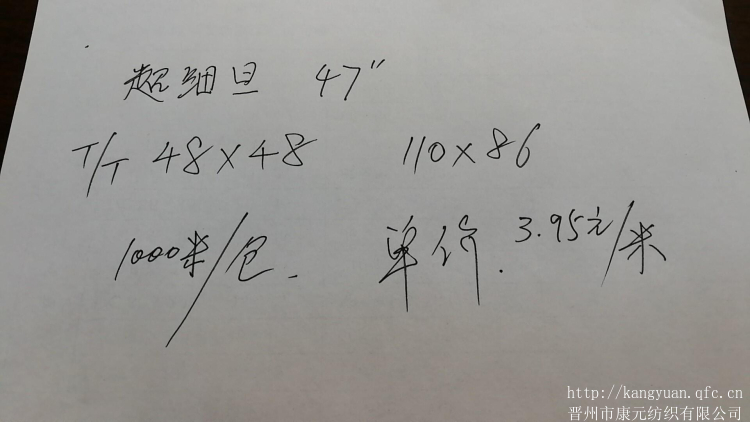 超细旦 47"
T/T 48×48 110×86
1000米/包. 单价. 3.95元/米
http://kangyuan.qfc.cn
晋州市康元纺织有限公司